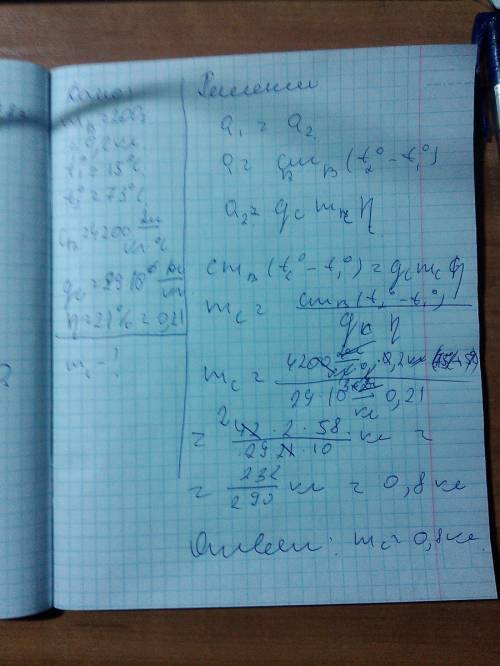 Дано:
m_в = 200г
= 0,2 кг
t₁° = 15°C
t₂° = 73°C
C_в = 4200 Дж/кг°C
q_c = 29·10⁶ Дж/кг
η = 21% = 0,21
m_c - ?
Решение
Q₁ = Q₂
Q = cm_в (t₂° - t₁°)
Q₂ = q_c m_c η
cm_в (t₂° - t₁°) = q_c m_c η
m_c = cm_в (t₂° - t₁°) / q_c η
m_c = 4200 · 0,2 кг / 29 · 10 · 0,21
= 42 · 2 · 58 / 29 21 · 10 кг =
= 232 / 290 кг = 0,8 кг
Ответ: m_c = 0,8 кг.